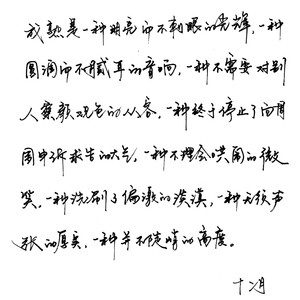 成熟是一种明亮而不刺眼的光辉，一种
圆润而不腻耳的音响，一种不需要对别
人察颜观色的从容，一种终于停止了向周
围申诉求告的大气，一种不理会哄闹的微
笑，一种洗刷了偏激的淡漠，一种无须声
张的厚实，一种并不陡峭的高度。
十二月